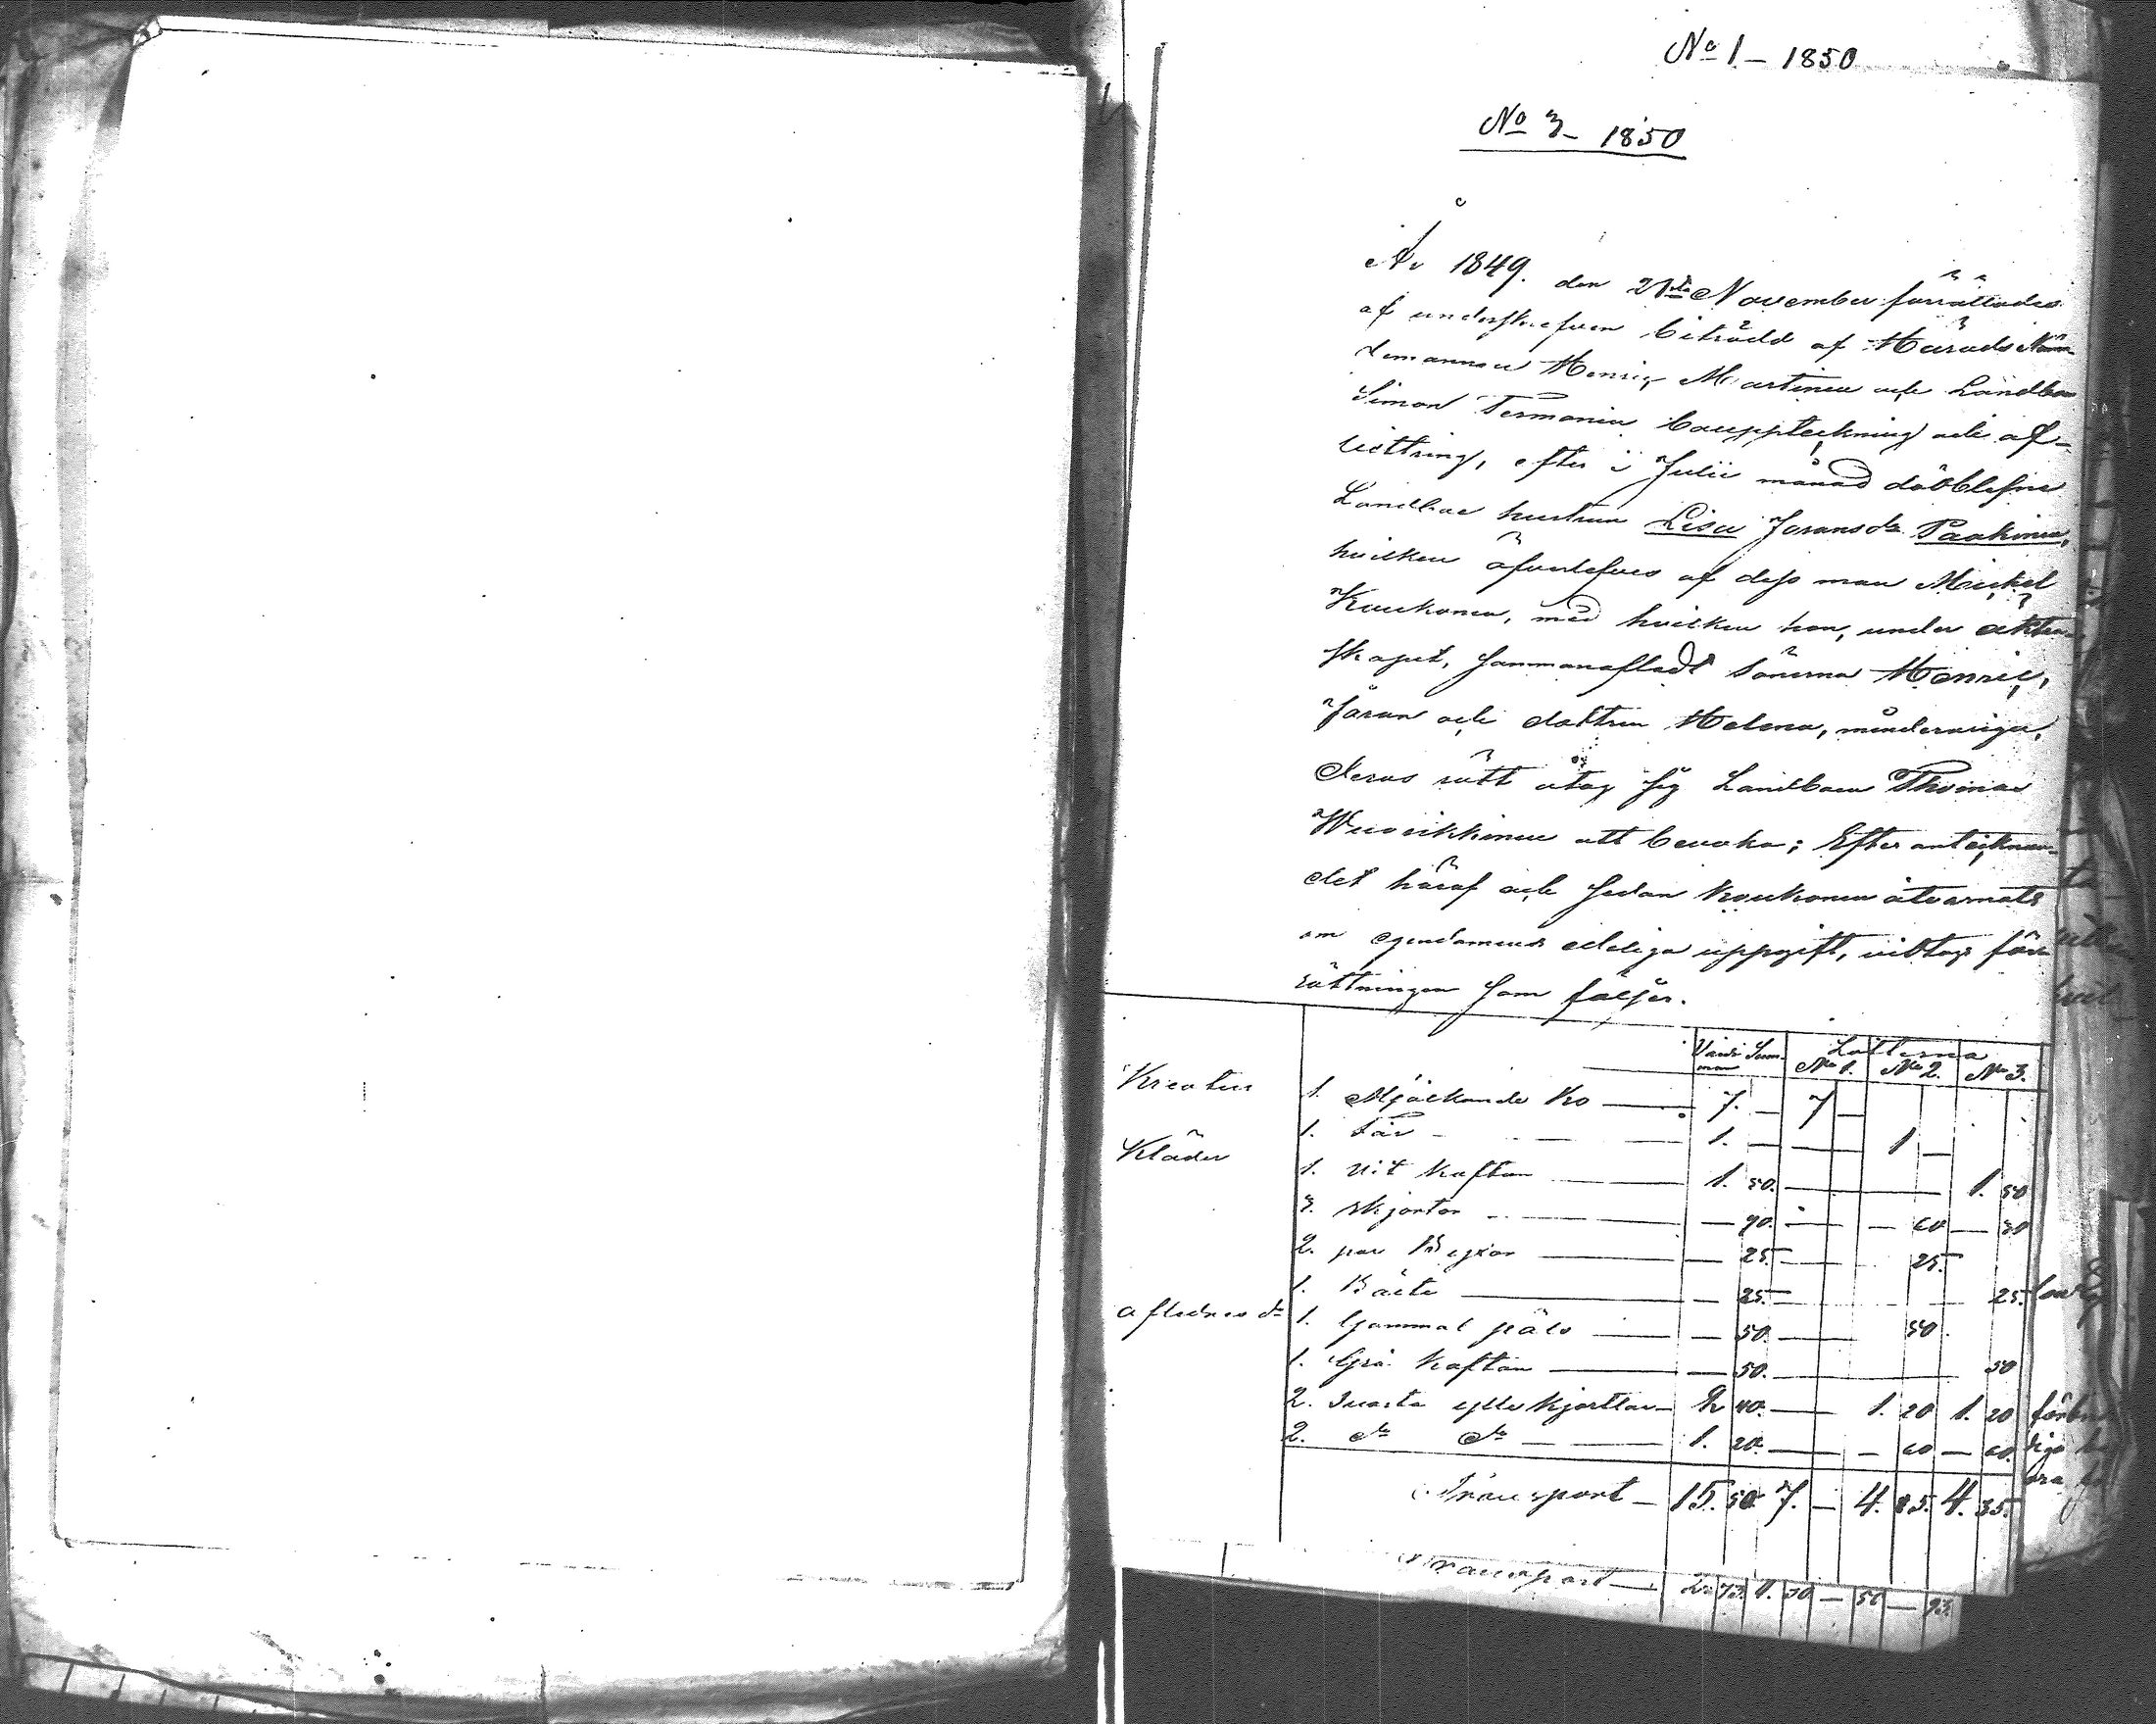 No 1 - 1850
No 3 - 1850
År 1849. den 21ste November förrättades
af underskrefven biträdd af Härads Nämn-
demannen Henric Martinen och Landbon
Simon Termonen bouppteckning och af-
vittring, efter i Julii månad dödblefne
Landboe hustrun Lisa Joransdr Paakinen,
hvilken öfverlefves af dess man Mickel
Koukonen, med hvilken hon, under ächten-
skapet, sammanafladt sönerna Henric,
Jöran och dottren Helena, minderåriga,
deras rätt åtog sig Landboen Thomas
Wuorikkinen att bevaka; Efter antecknan-
det häraf och sedan Koukonen åtvarnats
om egendomens edeliga uppgift, vidtogs för-
rättningen som följer.
Värde Sum- Lotterna
man No 1. No 2. No 3.
Kreatur 1. Mjölkande Ko — 7. — 7 —
1. Får — 1. — — 1 —
Kläder 1. vit Kaftan — 1. 50. — 1. 50
3. skjortor — 90. — — 60 — 30
2. par — 25. — 25.
1. Bälte — 25. — 25.
aflednes dr 1. Gammal päls — 50. — 50.
1. Grå Kaftan — 50. — 50
2. Svarta ylle kjortlar — 2. 40. — 1. 20 1. 20
2. do do — 1. 20. — — 60 — 60.
Transport — 15. 50 7. — 4. 85. 4. 35.
Transport — 2. 73. 1. 30 — 50 — 93.